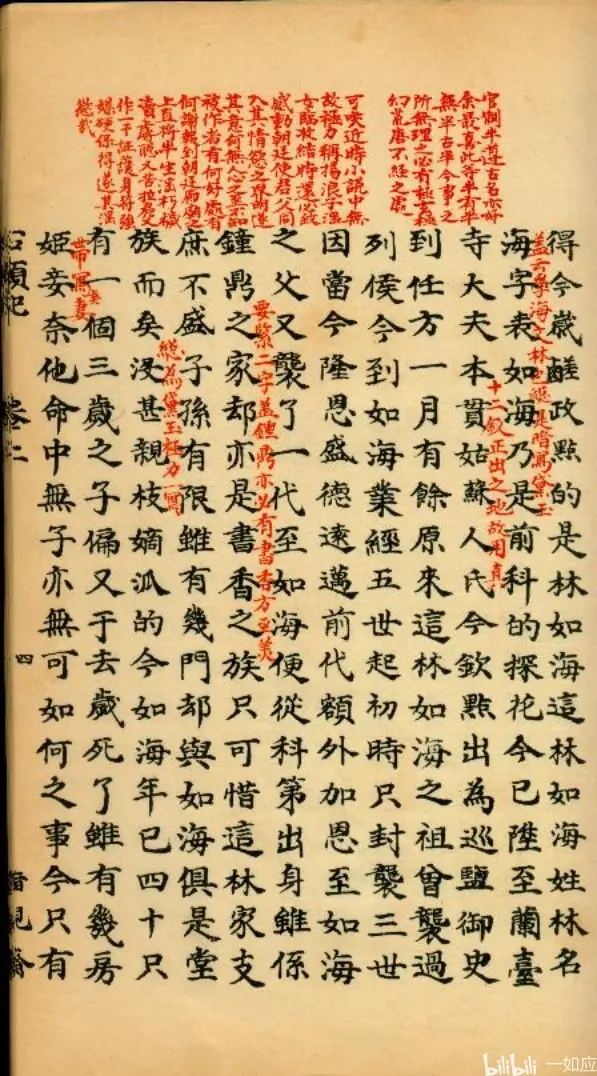 官制半遵古名亦好
余最喜此等半有半
無半古半今事之
所無理之必有極玄極
幻荒唐不經之處
可笑近時小說中無
故極力稱揚浪子淫
女臨收結時還必致
感動朝廷使君父同
入其情慾之界明遂
其意何無人心之至不知
被作者有何好處有
何謝報到朝廷廊廟之
上直將半生淫朽穢
瀆睿聰又苦拉君父
作一干証護身符強
媒硬保得遂其淫
慾哉
得今歲鹺政點的是林如海這林如海姓林名
盖云學海文林也總是暗寫黛玉
海字表如海乃是前科的探花今已陞至蘭臺
十二釵正出之地故用真
寺大夫本貫姑蘇人氏今欽點出為巡鹽御史
到任方一月有餘原來這林如海之祖曾襲過
列侯今到如海業經五世起初時只封襲三世
因當今隆恩盛德遠邁前代額外加恩至如海
之父又襲了一代至如海便從科第出身雖係
要緊二字盖鍾鼎亦必有書香方至美
鐘鼎之家却亦是書香之族只可惜這林家支
庶不盛子孫有限雖有幾門却與如海俱是堂
總為黛玉極力一寫
族而矣沒甚親枝嫡派的今如海年已四十只
有一個三歲之子偏又于去歲死了雖有幾房
帶寫賢妻
姬妾奈他命中無子亦無可如何之事今只有
石頭記 卷二 四 脂硯齋
bilibili 一如应